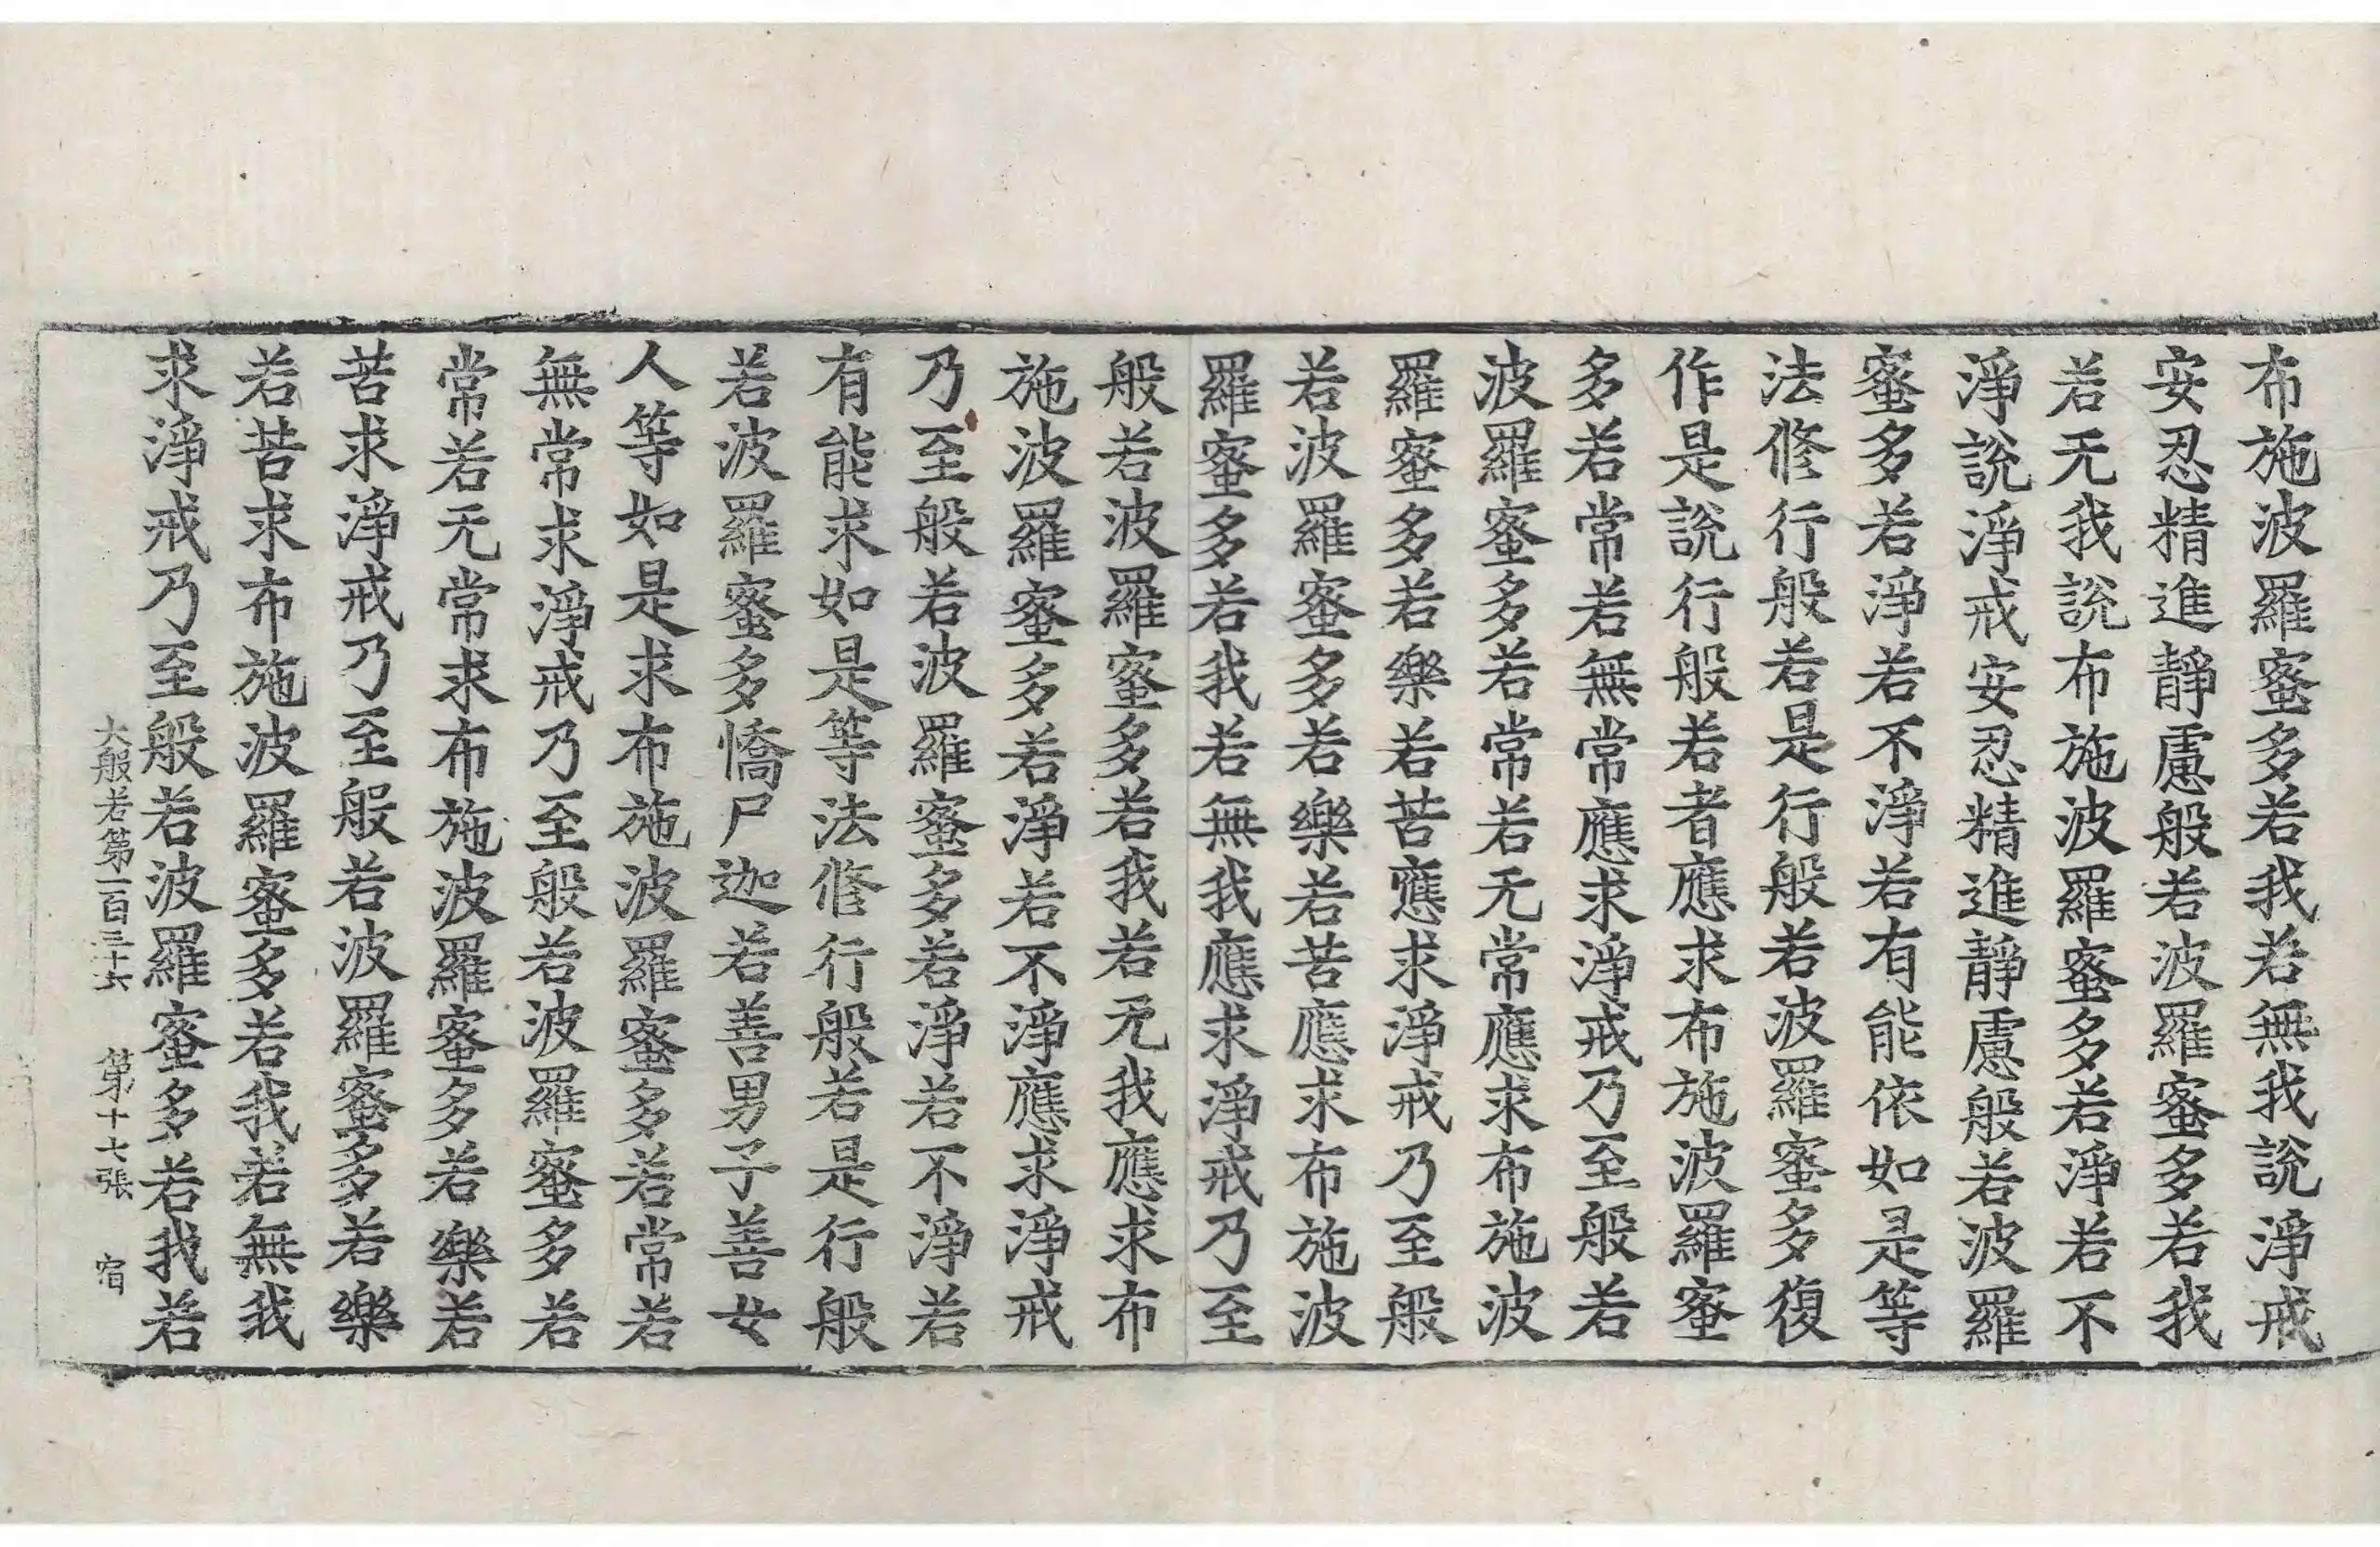 布施波羅蜜多若我若無我說淨戒
安忍精進靜慮般若波羅蜜多若我
若无我說布施波羅蜜多若淨若不
淨說淨戒安忍精進靜慮般若波羅
蜜多若淨若不淨若有能依如是等
法修行般若是行般若波羅蜜多復
作是說行般若者應求布施波羅蜜
多若常若無常應求淨戒乃至般若
波羅蜜多若常若无常應求布施波
羅蜜多若樂若苦應求淨戒乃至般
若波羅蜜多若樂若苦應求布施波
羅蜜多若我若無我應求淨戒乃至
般若波羅蜜多若我若无我應求布
施波羅蜜多若淨若不淨應求淨戒
乃至般若波羅蜜多若淨若不淨若
有能求如是等法修行般若是行般
若波羅蜜多憍尸迦若善男子善女
人等如是求布施波羅蜜多若常若
無常求淨戒乃至般若波羅蜜多若
常若无常求布施波羅蜜多若樂若
苦求淨戒乃至般若波羅蜜多若樂
若苦求布施波羅蜜多若我若無我
求淨戒乃至般若波羅蜜多若我若
大般若第一百三十六 第十七張 宿